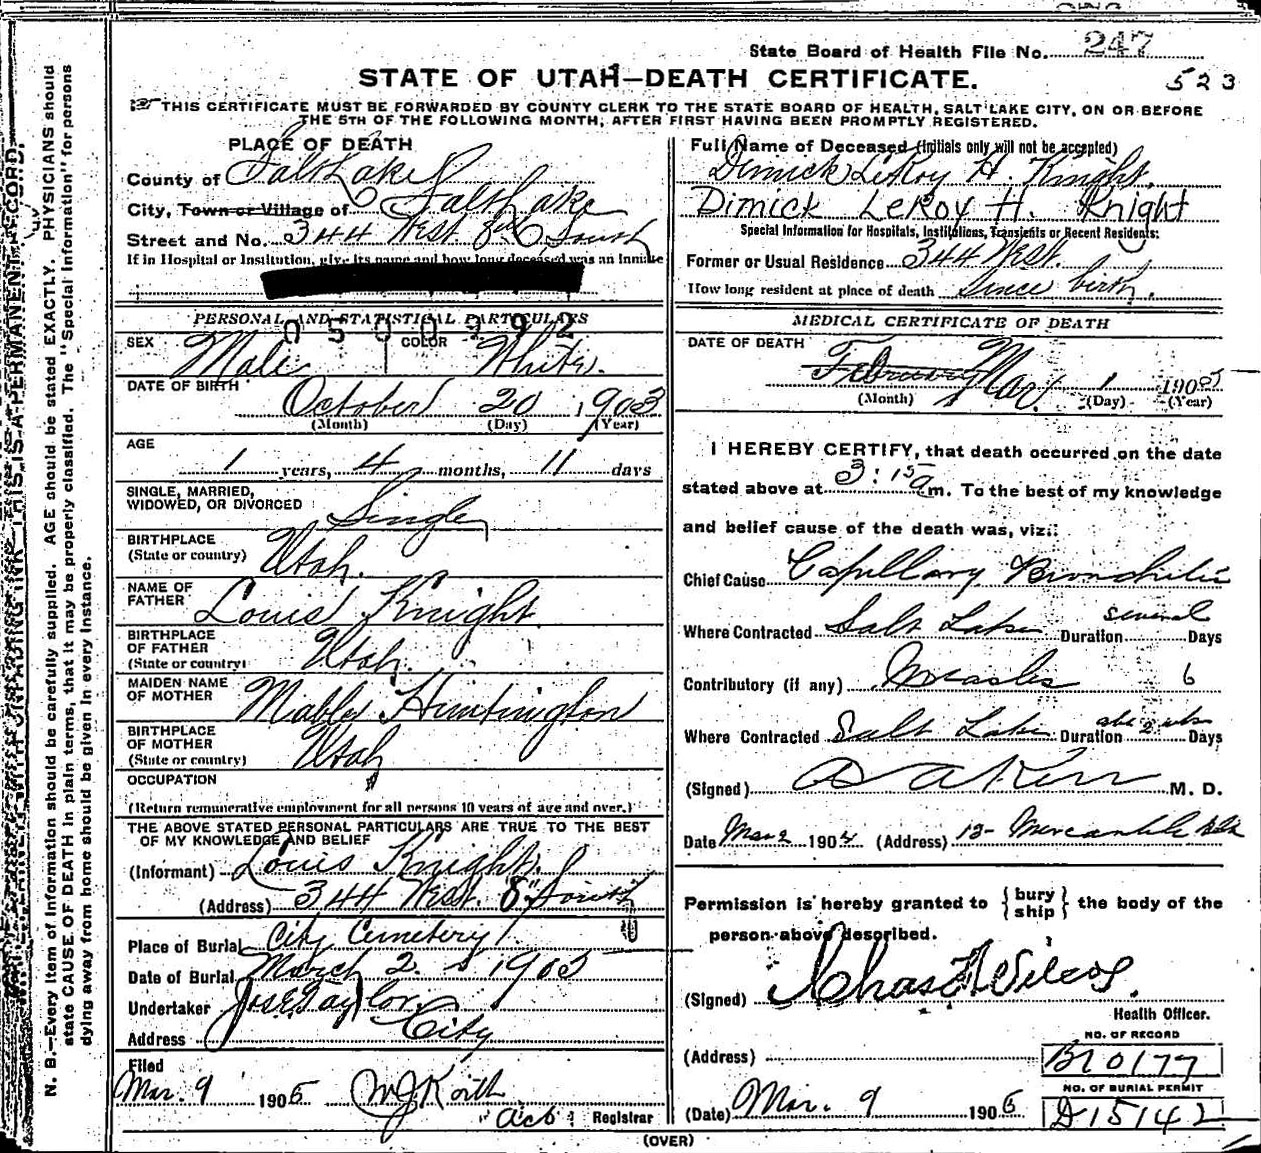 State Board of Health File No. 247
STATE OF UTAH—DEATH CERTIFICATE.
523
THIS CERTIFICATE MUST BE FORWARDED BY COUNTY CLERK TO THE STATE BOARD OF HEALTH, SALT LAKE CITY, ON OR BEFORE
THE 5TH OF THE FOLLOWING MONTH, AFTER FIRST HAVING BEEN PROMPTLY REGISTERED.
N. B.—Every item of information should be carefully supplied. AGE should be stated EXACTLY. PHYSICIANS should
state CAUSE OF DEATH in plain terms, that it may be properly classified. The "Special Information" for persons
dying away from home should be given in every instance.
THIS IS A PERMANENT RECORD.
PLACE OF DEATH
County of Salt Lake
City, Town or Village of Salt Lake
Street and No. 344 West 8th South
If in Hospital or Institution, give its name and how long deceased was an Inmate
PERSONAL AND STATISTICAL PARTICULARS
0500992
SEX Male COLOR White.
DATE OF BIRTH
October 20, 1903
(Month) (Day) (Year)
AGE
1 years, 4 months, 11 days
SINGLE, MARRIED,
WIDOWED, OR DIVORCED Single
BIRTHPLACE
(State or country) Utah.
NAME OF
FATHER Louis Knight
BIRTHPLACE
OF FATHER
(State or country) Utah.
MAIDEN NAME
OF MOTHER Mable Huntington
BIRTHPLACE
OF MOTHER
(State or country) Utah
OCCUPATION
(Return remunerative employment for all persons 10 years of age and over.)
THE ABOVE STATED PERSONAL PARTICULARS ARE TRUE TO THE BEST
OF MY KNOWLEDGE AND BELIEF
(Informant) Louis Knight.
(Address) 344 West 8" South
Place of Burial City Cemetery
Date of Burial March 2. 1905
Undertaker Jos E Taylor
Address City
Filed
Mar. 9 1905
Registrar
Full Name of Deceased (Initials only will not be accepted)
Dimick LeRoy H. Knight.
Dimick LeRoy H. Knight
Special Information for Hospitals, Institutions, Transients or Recent Residents:
Former or Usual Residence 344 West.
How long resident at place of death Since birth.
MEDICAL CERTIFICATE OF DEATH
DATE OF DEATH
February Mar 1 1905
(Month) (Day) (Year)
I HEREBY CERTIFY, that death occurred on the date
stated above at 3:15 a m. To the best of my knowledge
and belief cause of the death was, viz:
Chief Cause Capillary Bronchitis
Where Contracted Salt Lake Duration several Days
Contributory (if any) Measles 6
Where Contracted Salt Lake Duration abt 2 wks Days
(Signed) M. D.
Date Mar 2 1904 (Address) 12- Mercantile Blk
Permission is hereby granted to {bury
ship} the body of the
person above described.
(Signed) Chas F Wilcox.
Health Officer.
(Address)
NO. OF RECORD
B10177
NO. OF BURIAL PERMIT
D15142
(Date) Mar. 9 1905
(OVER)